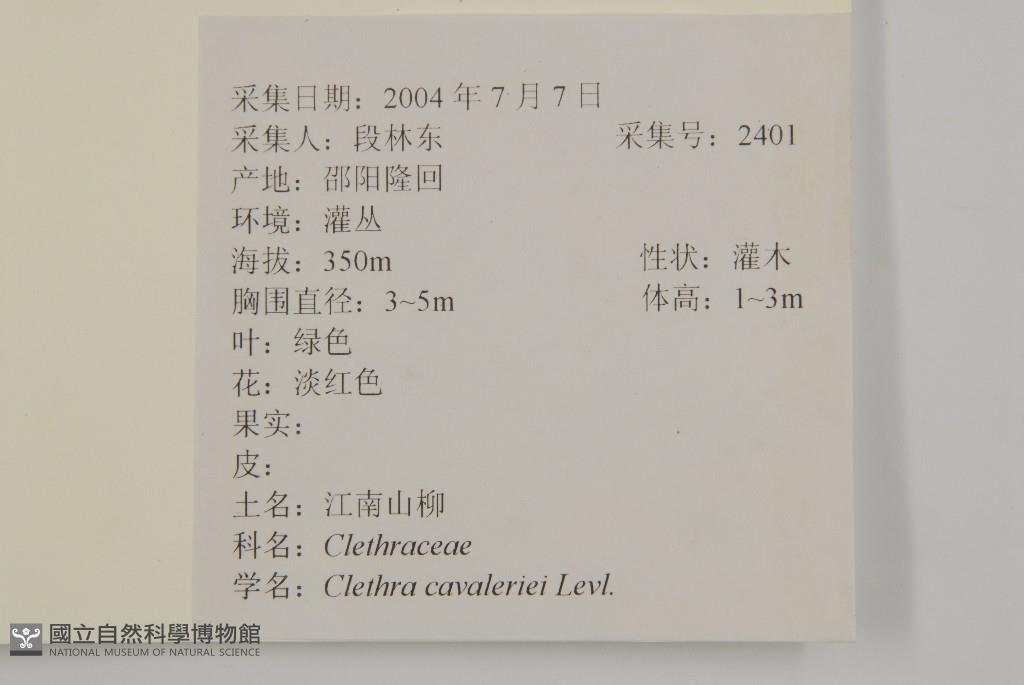 采集日期：2004 年 7 月 7 日
采集人：段林东 采集号：2401
产地：邵阳隆回
环境：灌丛
海拔：350m 性状：灌木
胸围直径：3~5m 体高：1~3m
叶：绿色
花：淡红色
果实：
皮：
土名：江南山柳
科名：Clethraceae
学名：Clethra cavaleriei Levl.
國立自然科學博物館
NATIONAL MUSEUM OF NATURAL SCIENCE